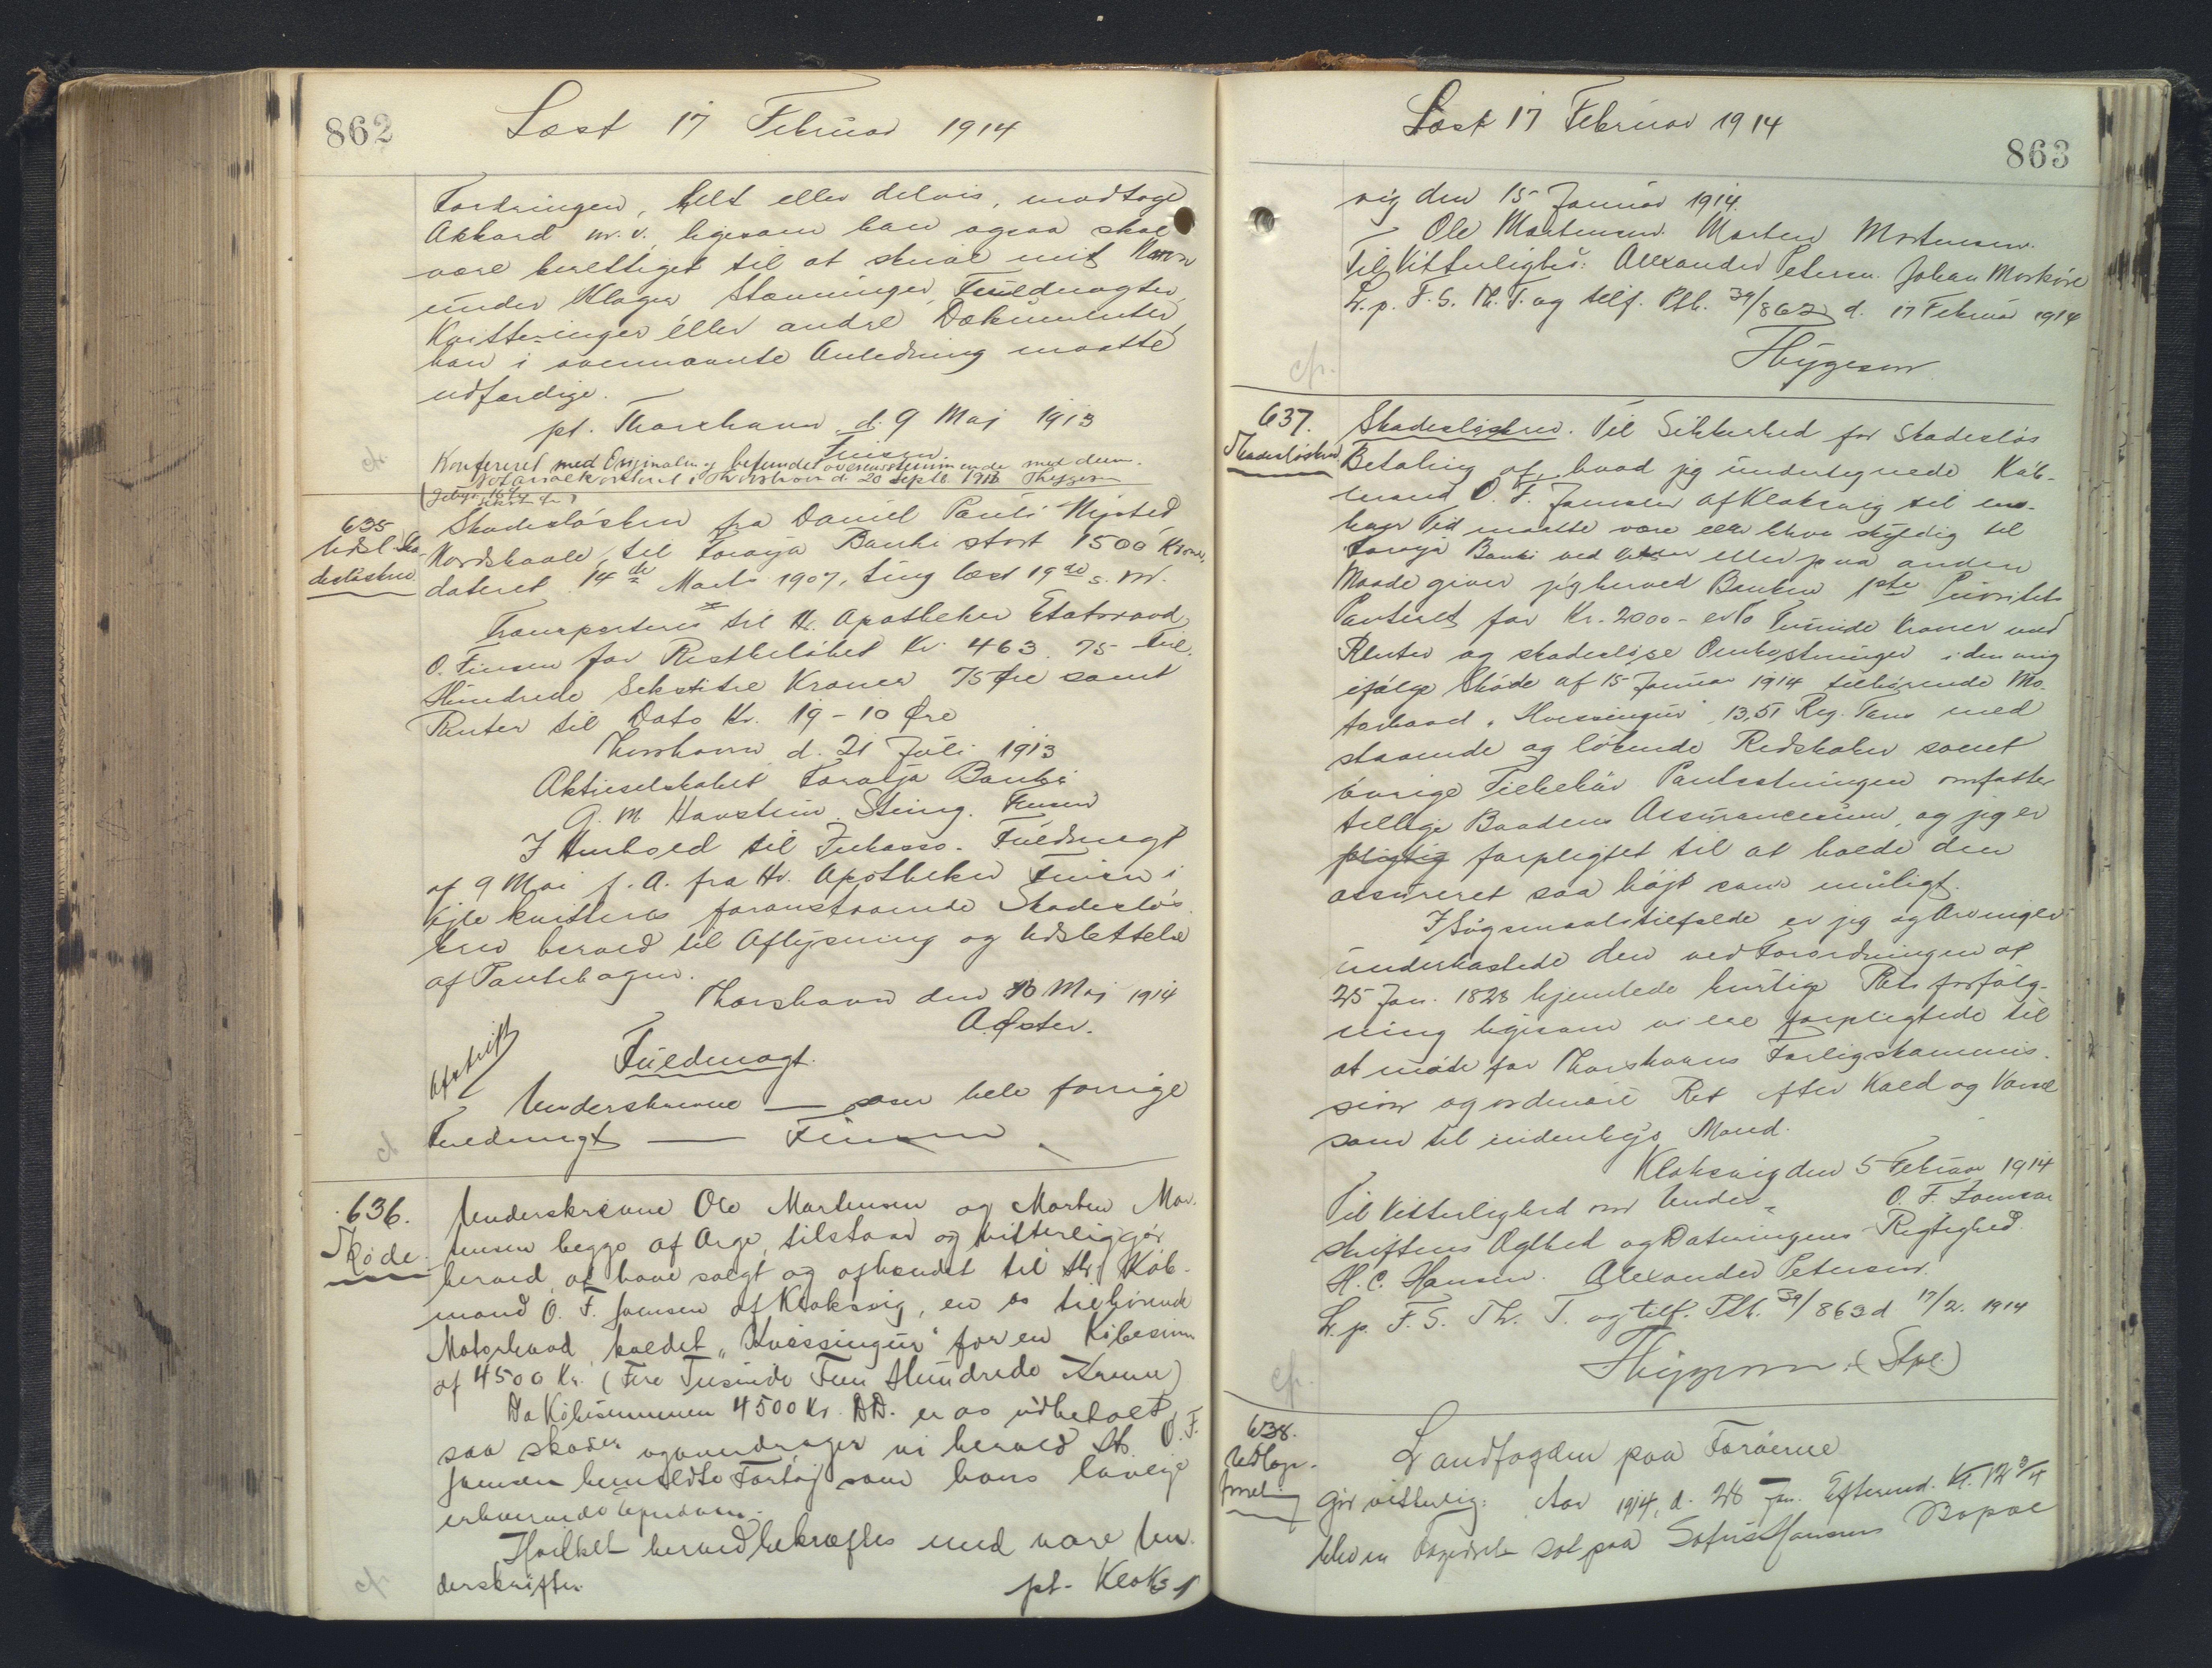 862
Læst 17 Februar 1914
Fordringen, helt eller delvis, modtage
Akkord m.v. ligesom han ogsaa skal
være berettiget til at skrive mit Navn
under Klager Stævninger, Fuldmagter,
Kvitteringer eller andre Dokumenter
han i ovennævnte Anledning maatte
udfærdige.
pt. Thorshavn, d. 9 Maj 1913
Finsen.
Konfereret med Originalen og befundet overensstemmende med den.
i Thorshavn d. 20 Septb. 1913
635
Udsl. Ska-
desløsbrev
Skadesløsbrev fra Daniel Pauli Mijsted
Nordskaale, til Færøya Banki stort 1500 Kroner,
dateret 14de Marts 1907, ting læst 19de s. M.
Transporteres til Hr. Apotheker Etatsraad
O. Finsen for Restbeløbet Kr. 463. 75 Fire
Hundrede Sekstitre Kroner 75 Øre samt
Renter til Dato Kr. 19-10 Øre
Thorshavn d. 21 Juli 1913
Aktieselskabet Føroya Banki
G. M. Havstein. Steing. Jensen
I Henhold til Inkasso-Fuldmagt
af 9 Mai f. A. fra Hr. Apotheker Finsen i
Vejle kvitteres foranstaaende Skadesløs
brev herved til Aflysning og Udslettelse
af Pantebogen.
Thorshavn den 16 Maj 1914
A. Øster.
Afskrift
Fuldmagt.
Underskrevne — som hele forrige
Fuldmagt — Finsen
636.
Skøde.
Underskrevne Ole Martensen og Morten Mor-
tensen begge af Arge, tilstaar og vitterliggjør
herved, at have solgt og afhændet til Hr. Køb-
mand O. F. Joensen af Klaksvig, en os tilhørende
Motorbaad, kaldet „Kvessingur" for en Købesum
af 4500 Kr. (Fire Tusinde Fem Hundrede Kroner)
Da Købesummen 4500 Kr. D.D. er os udbetalt
saa skøder og overdrager vi herved Hr. O. F.
Joensen bemeldte Fartøj som hans lovlige
erhvervede Ejendom.
Hvilket herved bekræftes med vore Un-
derskrifter.
pt. Klaks-
Læst 17 Februar 1914
863
vig den 15 Januar 1914.
Ole Martensen. Morten Mortensen.
Til Vitterlighed: Alexander Petersen. Johan Morkøre
L. p. F. S. Th. T. og tilf. Ptb. 39/862 d. 17 Februar 1914
637.
Skadesløsbrev
Skadesløsbrev. Til Sikkerhed for skadesløs
Betaling af, hvad jeg undertegnede Køb-
mand O. F. Joensen af Klaksvig til en-
hver Tid maatte være eller blive skyldig til
Føroya Banki ved Veksler eller paa anden
Maade giver jeg herved Banken 1ste Prioritets
Panteret for Kr. 2000 - er To Tusinde Kroner med
Renter og skadesløse Omkostninger i den mig
ifølge Skøde af 15 Januar 1914 tilhørende Mo-
torbaad „Kvessingur" 13,51 Reg. Tons med
staaende og løbende Redskaber samt
øvrige Tilbehør. Pantsætningen omfatter
tillige Baadens Assurancesum, og jeg er
pligtig forpligtet til at holde den
assureret saa højt som muligt.
I Søgsmaalstilfælde er jeg og Arvinger
underkastede den ved Forordningen af
25 Jan. 1828 hjemlede hurtige Rets forfølg-
ning ligesom vi ere forpligtede til
at møde for Thorshavns Forligskommis-
sion og ordinære Ret efter Kald og Varsel
som til indenbys Mand.
Klaksvig den 5 Februar 1914
O. F. Joensen
Til Vitterlighed om Under-
skriftens Ægthed og Dateringens Rigtighed.
H. C. Hansen. Alexander Petersen.
L. p. F. S. Th. T. og tilf. Ptb. 39/863 d 17/2. 1914
(Stpl.)
638.
Udlægs-
forretning
Landfogden paa Færøerne
Gjør vitterlig: Aar 1914, d. 28 Jan. Eftermd. Kl. 12 3/4
blev en Fogedret sat paa Sofus Hansens Bopæl